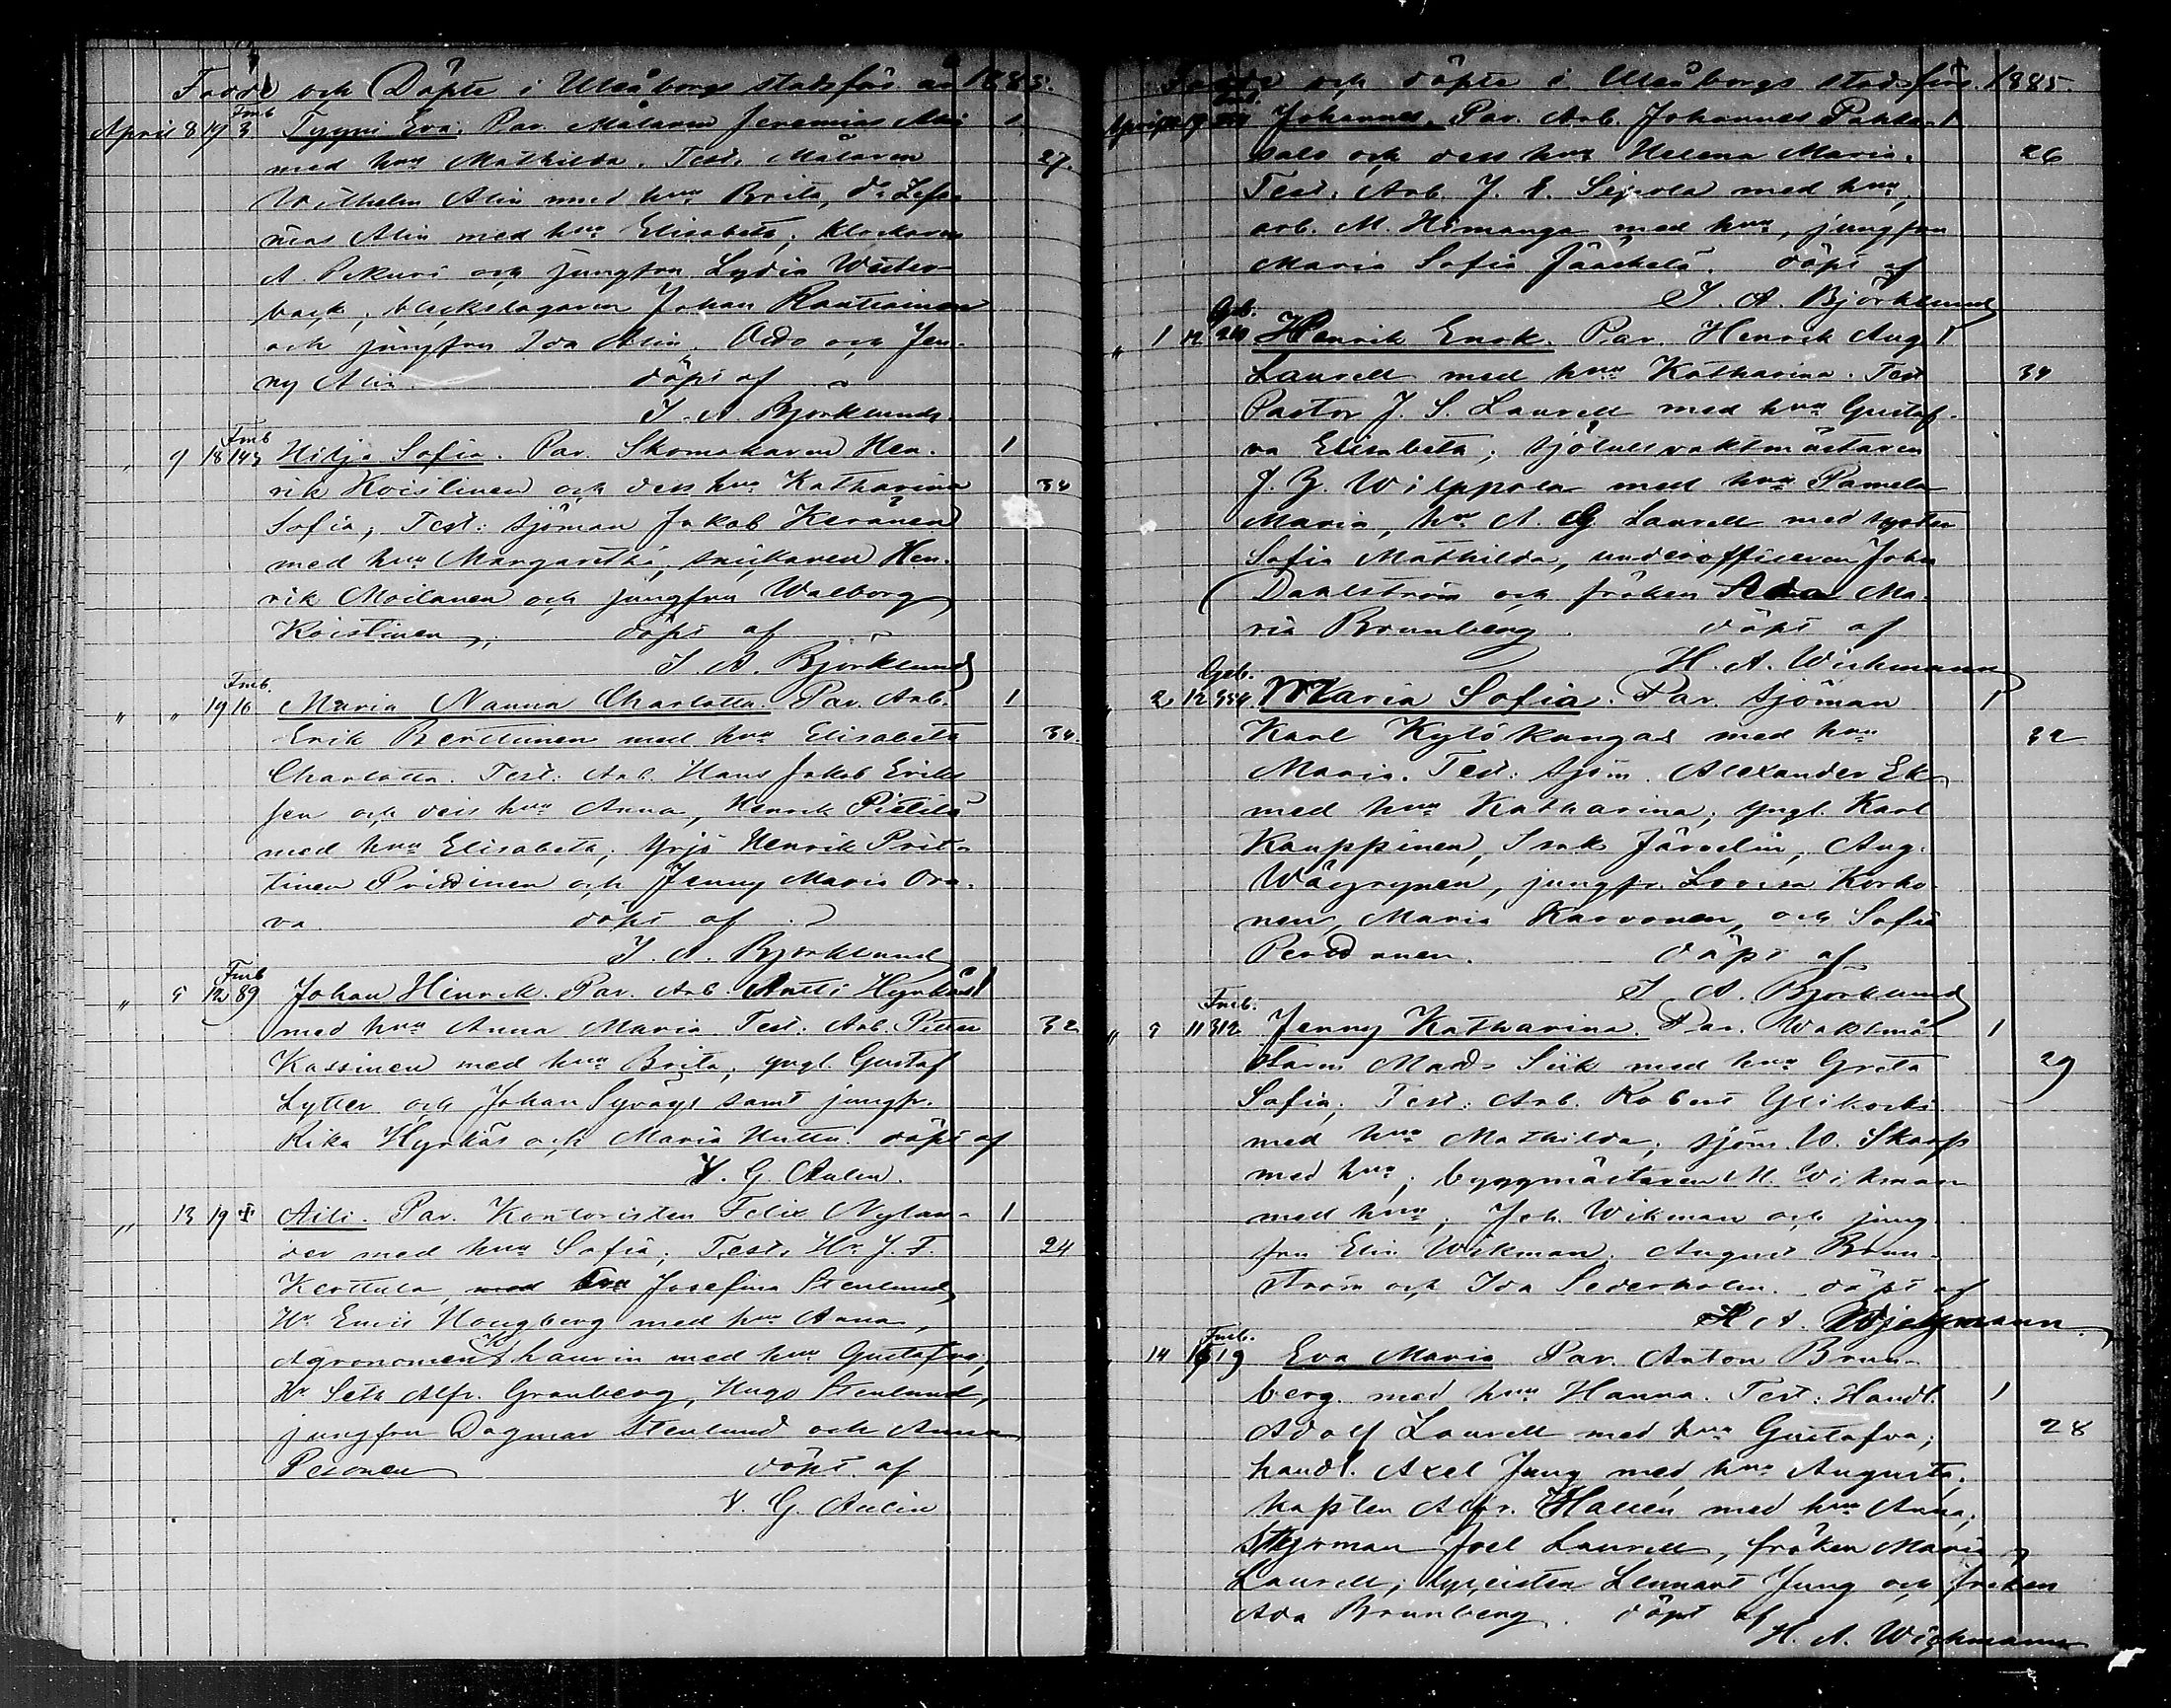 Födde och Döpte i Uleåborgs stadsförs. år 1885.
Fmb
April 8 17 3. Tyyni Eva. Par. Målaren Jeremias Alin 1
med hu Mathilda. Test. Målaren 27.
Wilhelm Alin med hu Brita, do Zefa-
nias Alin med hu Elisabeta, klockaren
A. Pekuri och jungfru Lydia Wester-
back, bleckslagaren Johan Rautiainen
och jungfru Ida Alin, Aldo och Jen-
ny Alin döpt af
I. A. Björklund.
Fmb
" 9 18 143 Hilja Sofia. Par. Skomakaren Hen- 1
rik Koistinen och dess hu Katharina 34
Sofia; Test: sjöman Jakob Keränen
med hu Margaretha, snickaren Hen-
rik Moilanen och jungfru Walborg
Koistinen, döpt af
I. A. Björklund
Fmb.
" " 19 16 Maria Nanna Charlotta. Par. Arb. 1
Erik Berttunen med hu Elisabeta 34.
Charlotta. Test: Arb. Hans Jakob Eriks-
sen och dess hu Anna, Henrik Pietilä
med hu Elisabeta; Yrjö Henrik Prit-
tinen Priddinen och Jenny Maria Ora-
va. döpt af
I. A. Björklund
Fmb
" 5 12 89 Johan Henrik. Par. Arb. Antti Hyrkäs 1
med hu Anna Maria. Test: Arb. Petter 32
Kassinen med hu Brita; yngl. Gustaf
Lytter och Johan Syväys samt jungfr.
Rika Hyrkäs och Maria Huttu. döpt af
V. G. Aulin.
" 13 19 I Aili. Par. Kontoristen Felix Nylan- 1
der med hu Sofia; Test. Hr J. F. 24
Kerttula, med fru Josefina Stenlund,
Hr Emil Hougberg med hu Anna,
Agronomen Thaurin med hu Gustafva,
Hr Seth Alfr. Granberg, Hugo Stenlund,
jungfru Dagmar Stenlund och Anna
Pesonen döpt af
V. G. Aulin
Födde och döpte i Uleåborgs stadsförs. 1885.
Fmb.
April Johannes. Par. Arb. Johannes Pakka- 1
salo och dess hu Helena Maria. 26
Test: Arb. J. E. Sipola med hu,
arb. M. Himanga med hu, jungfru
Maria Sofia Jääskelä. döpt af
I. A. Björklund
Geb.
" 1 12 Henrik Enok. Par. Henrik Aug. 1
Laurell med hu Katharina. Test 34
Pastor J. S. Laurell med hu Gustaf-
va Elisabeta; sjötullvaktmästaren
J. Z. Wilppola med hu Pamela
Maria, hr A. G. Laurell med syster
Sofia Mathilda, underofficeren John
Dahlström och fröken Ada Ma-
ria Brunberg. döpt af
H. A. Wichmann
Geb.
" 2 12 354 Maria Sofia. Par. sjöman 1
Karl Kylökangas med hu 32
Maria. Test: sjöm. Alexander Ek
med hu Katharina; yngl. Karl
Kauppinen, Isak Järvelin, Aug.
Wäyrynen, jungfr. Lovisa Korho-
nen, Maria Karvonen, och Sofia
döpt af
I. A. Björklund
Fmb.
" 9 11 312 Jenny Katharina. Par. Waktmä- 1
staren Mads Siik med hu Greta 29
Sofia; Test: Arb. Robert Ylikoski
med hu Mathilda; sjöm. W. Skarp
med hu; byggmästaren M. Wikman
med hu; Joh. Wikman och jung-
fru Elin Wikman. August Brun-
ström och Ida Sederholm. döpt af
H. A. Wichmann.
Fmb.
" 14 16 19 Eva Maria Par. Anton Brun-
berg med hu Hanna. Test: Handl. 1
Adolf Laurell med hu Gustafva; 28
handl. Axel Jung med hu Augusta,
kapten Alfr. Hallén med hu Anna,
styrman Joel Laurell, fröken Maria
Laurell; lyceisten Lennart Jung och fröken
Ada Brunberg. döpt af
H. A. Wichmann